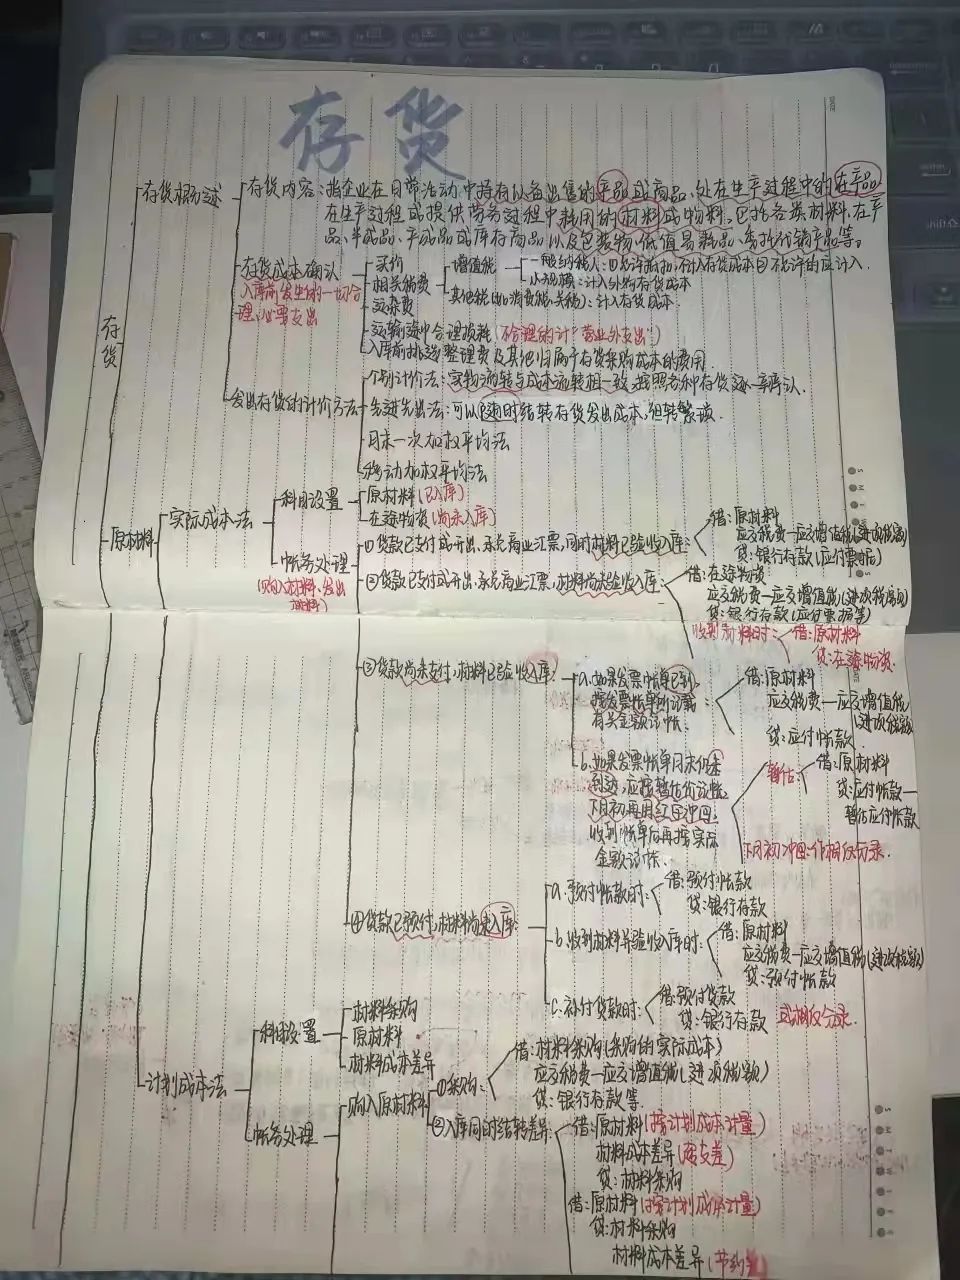 存货
存货概述
存货内容：指企业在日常活动中持有以备出售的产品或商品、处在生产过程中的在产品
在生产过程或提供劳务过程中耗用的材料或物料，包括各类材料、在产
品、半成品、产成品或库存商品以及包装物、低值易耗品、委托代销产品等。
存货成本确认
入库前发生的一切合
理、必要支出
买价
相关税费
增值税
一般纳税人：①允许抵扣，不计入存货成本②不允许的应计入.
小规模：计入外购存货成本
其他税(如消费税、关税)：计入存货成本.
运杂费
运输途中合理损耗(不合理的计"营业外支出")
入库前挑选整理费及其他归属于存货采购成本的费用
存货
发出存货的计价方法
个别计价法：实物流转与成本流转相一致，按照各种存货逐一辨认.
先进先出法：可以随时结转存货发出成本，但较繁琐.
月末一次加权平均法
移动加权平均法
原材料
实际成本法
科目设置
原材料(已入库)
在途物资(尚未入库)
帐务处理
(购入材料、发出
材料)
①货款已支付或开出、承兑商业汇票，同时材料已验收入库：
借：原材料
应交税费—应交增值税(进项税额)
贷：银行存款(应付票据)
②货款已支付或开出、承兑商业汇票，材料尚未验收入库：
借：在途物资
应交税费—应交增值税(进项税额)
贷：银行存款(应付票据等)
收到材料时：借：原材料
贷：在途物资.
③货款尚未支付，材料已验收入库：
a.如果发票帐单已到，
按发票帐单所记载
有关金额记帐.
借：原材料
应交税费—应交增值税
(进项税额)
贷：应付帐款
b.如果发票帐单月末仍未
到达，应按暂估价记帐，
下月初再用红字冲回，
收到帐单后再按实际
金额记帐.
暂估：
借：原材料
贷：应付帐款—
暂估应付帐款
下月初冲回：作相反分录.
④货款已预付，材料尚未入库：
a.预付帐款时：
借：预付帐款
贷：银行存款
b.收到材料并验收入库时：
借：原材料
应交税费—应交增值税(进项税额)
贷：预付帐款
c.补付货款时：
借：预付货款
贷：银行存款 或相反分录.
计划成本法
科目设置
材料采购
原材料
材料成本差异
帐务处理
购入原材料
①采购：
借：材料采购(采购的实际成本)
应交税费—应交增值税(进项税额)
贷：银行存款等.
②入库同时结转差异：
借：原材料(按计划成本计量)
材料成本差异(超支差)
贷：材料采购
借：原材料(按计划成本计量)
贷：材料采购
材料成本差异(节约差)